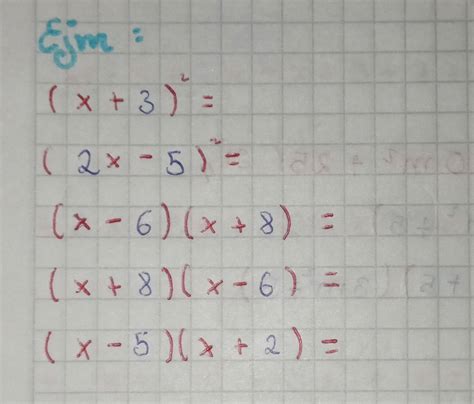 Ejm:
(x + 3)² =
(2x - 5)² =
(x - 6)(x + 8) =
(x + 8)(x - 6) =
(x - 5)(x + 2) =